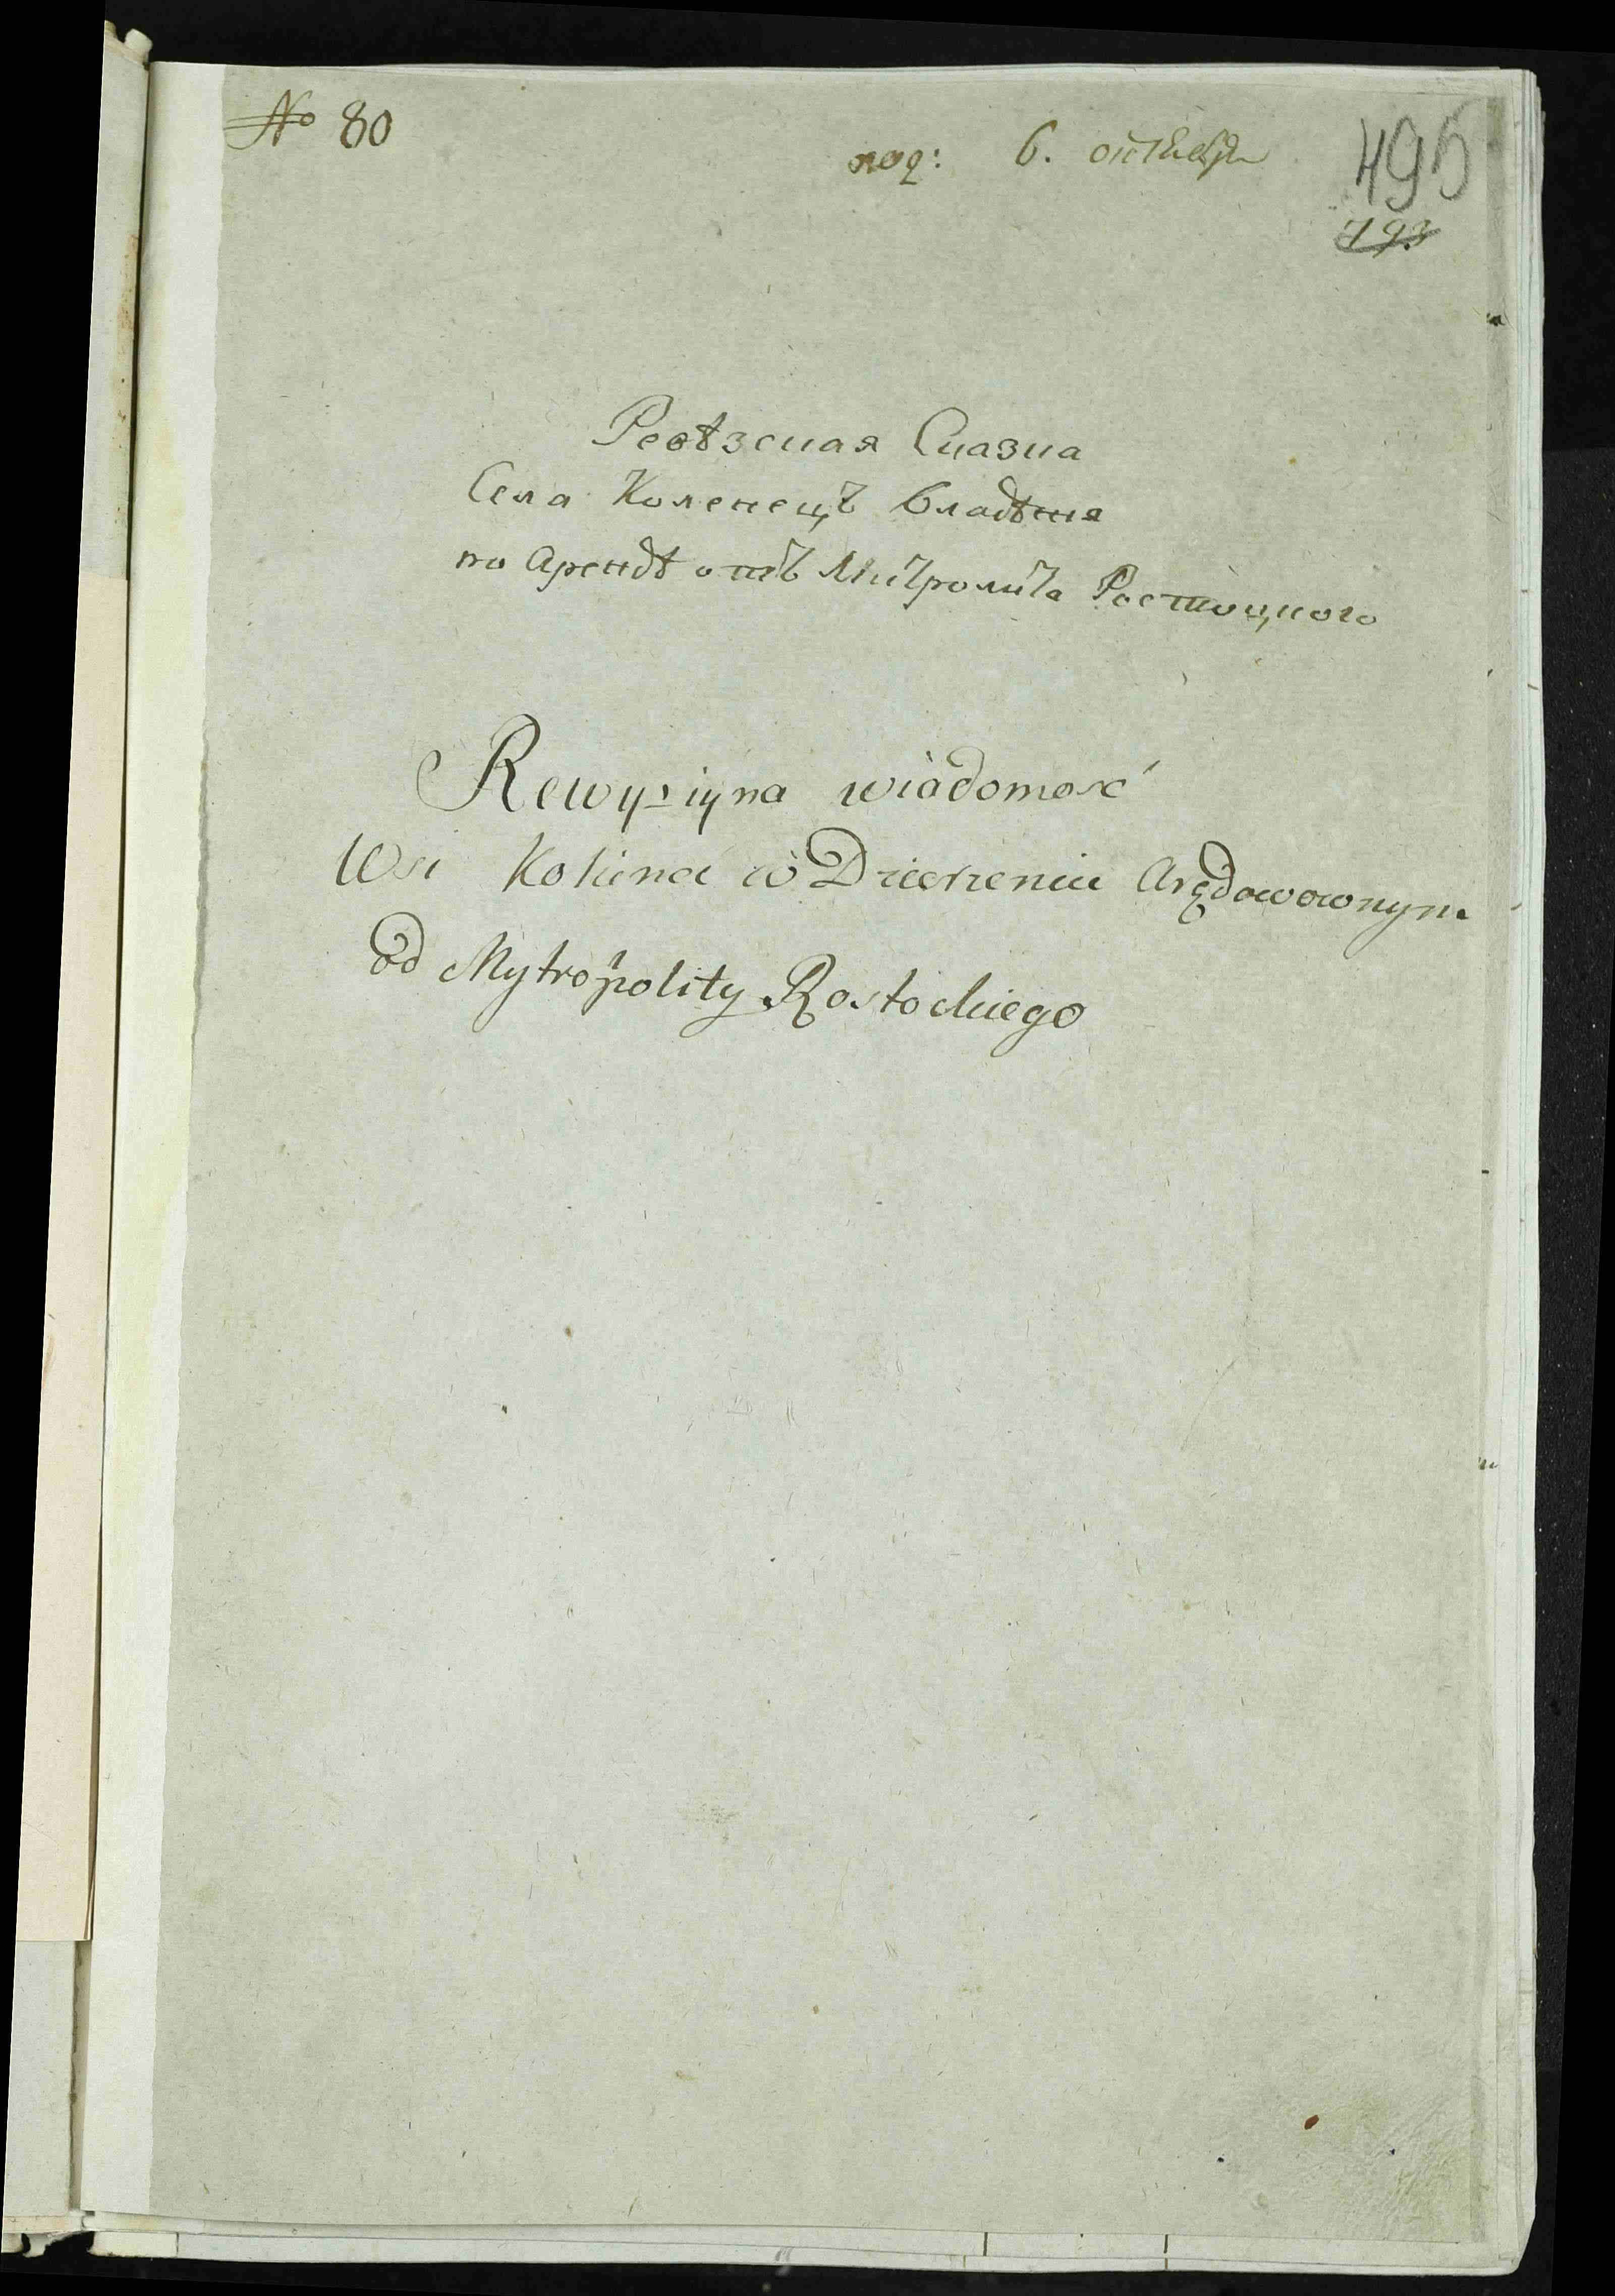 № 80
под: 6. октября
495
793
Ревѣзская Сказка
Села Коленецъ владѣня
по Арендѣ отъ Митролита Ростоцкого
Rewyziyna wiadomość
Wsi Koliniec w Dzierzeniu Arędowownym
od Mytropolity Rostockiego